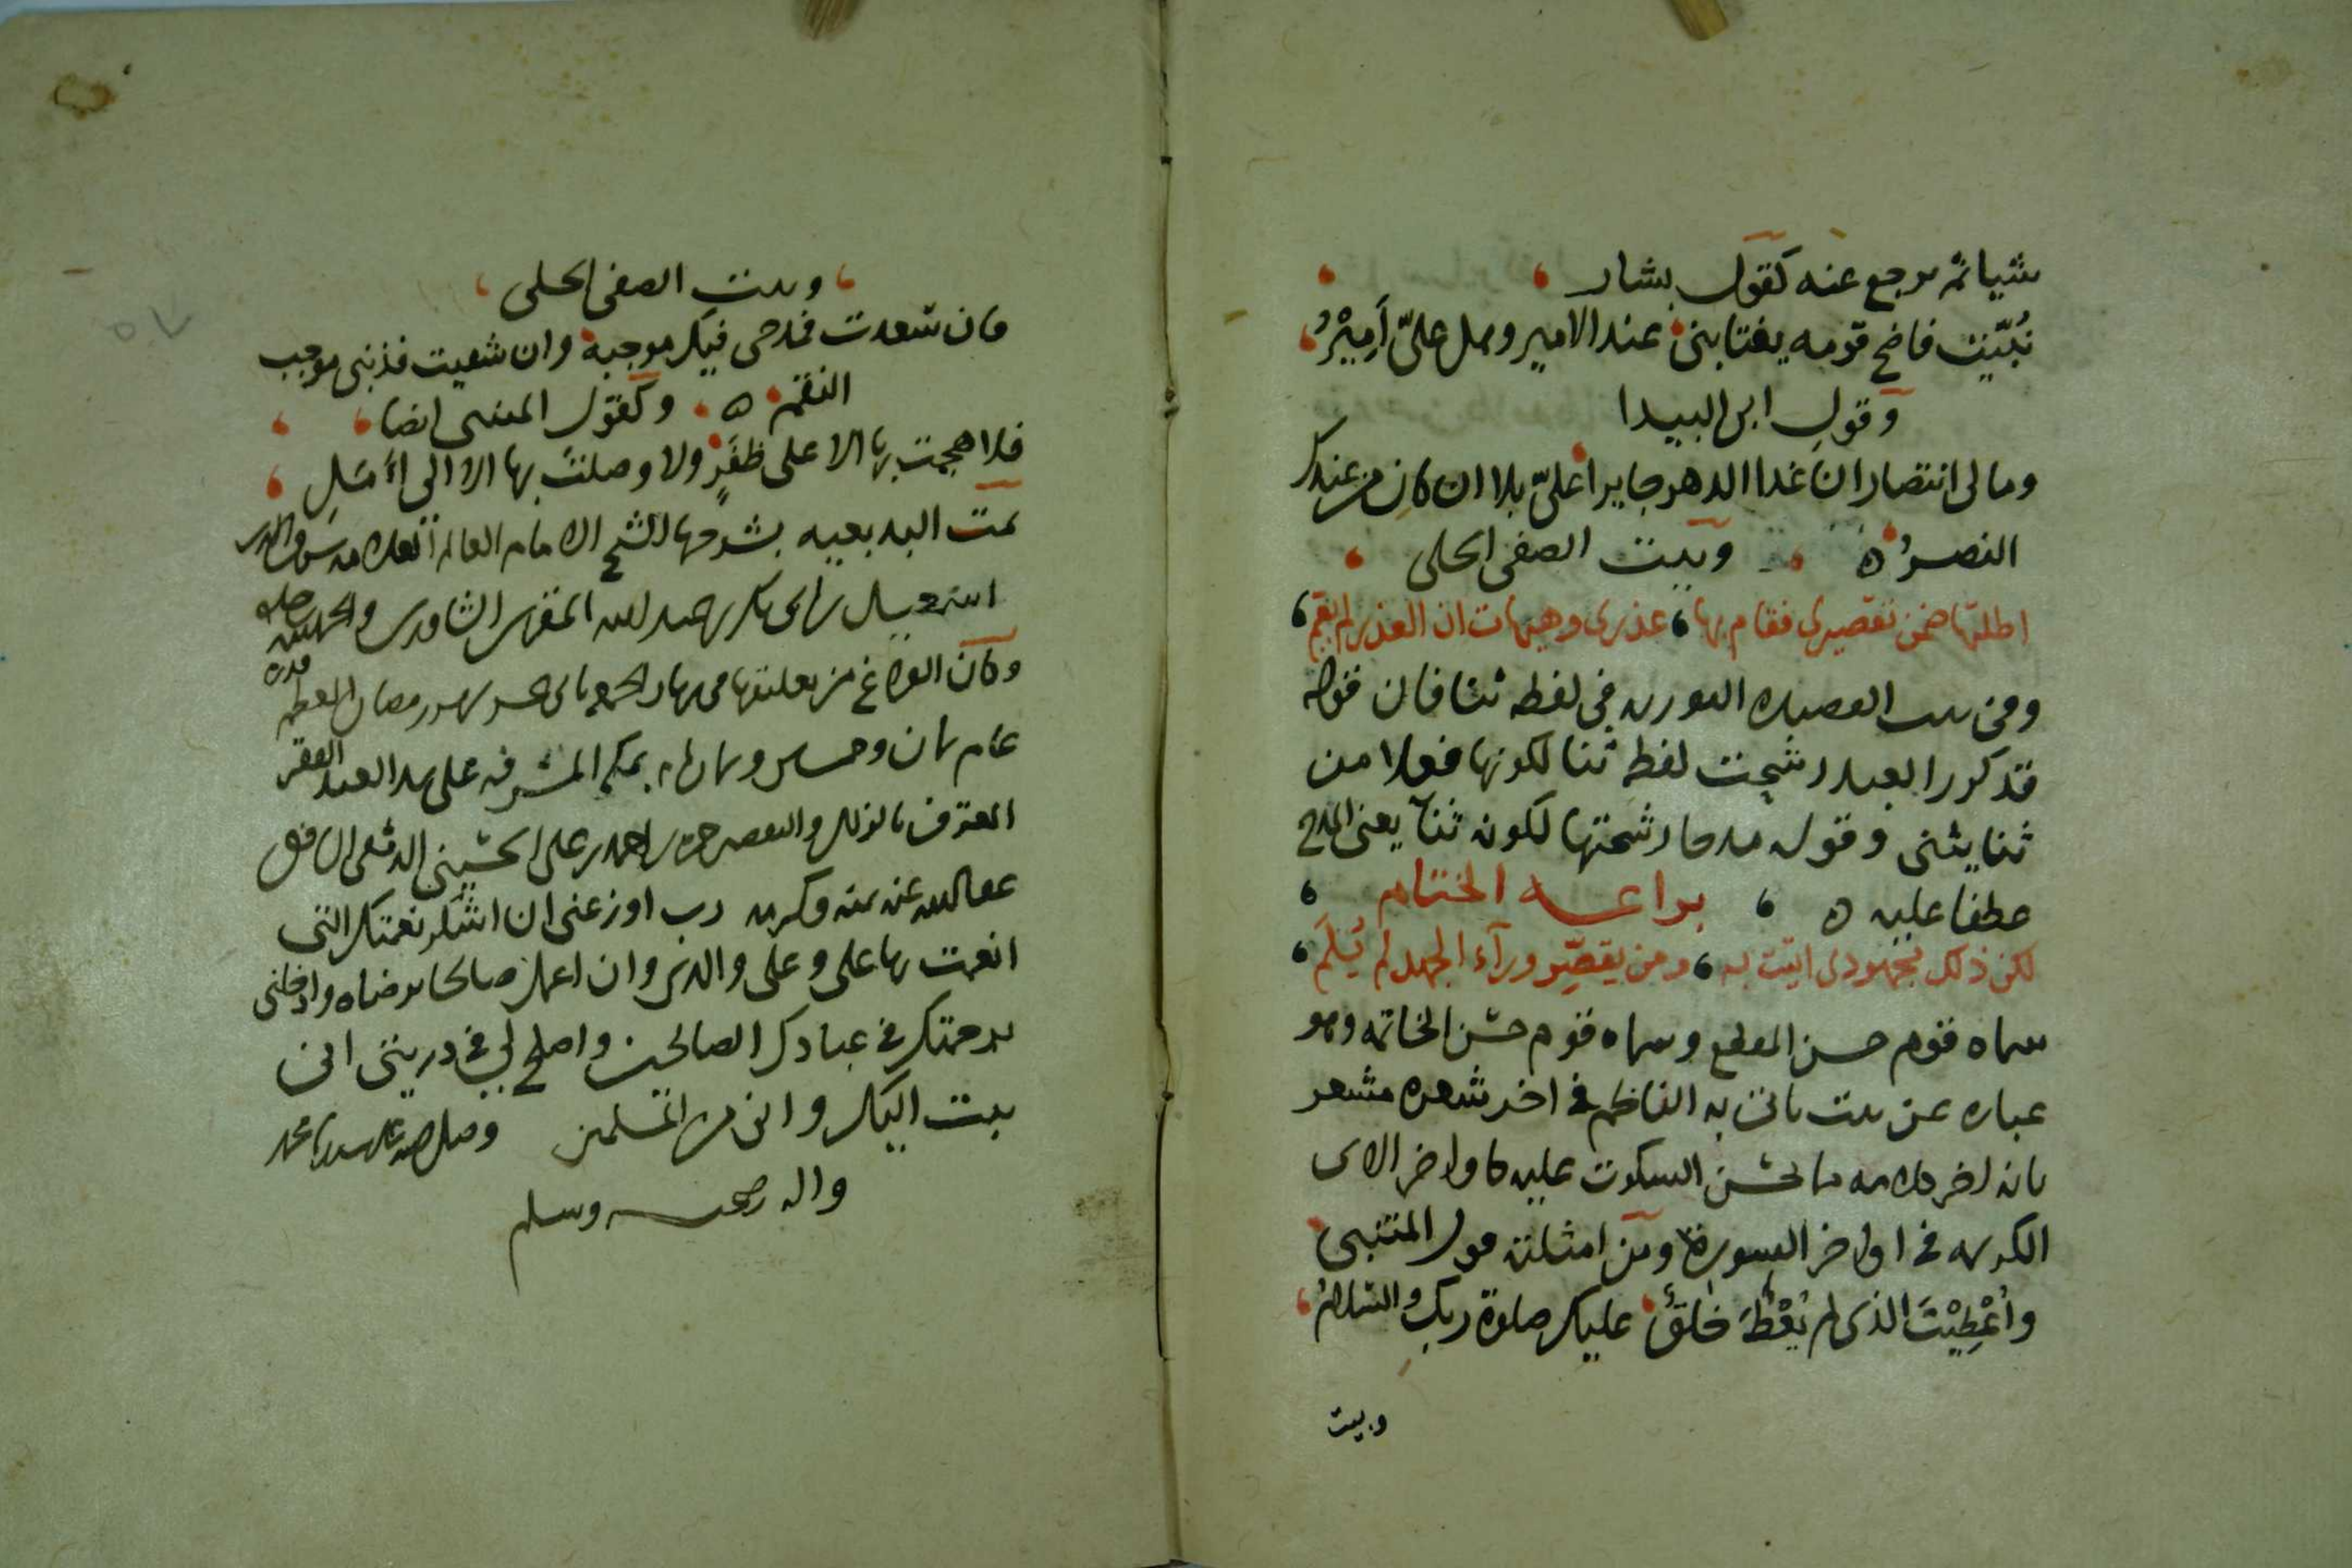 شيا ثم يرجع عنه كقول بشار
نُبّيت فاضح قومه يغتابني عند الامير وهل عليّ أَمِيْرُ
وقول ابن البيدا
وما لي انتصار ان غدا الدهر جايرا عليّ بلا ان كان من عندك
النصرُ ه وبيت الصفي الحلي
اطلتها ضمن تقصيري فقام بها عذري وهيهات ان العذر لم يقم
وفي بيت القصيده التوريه في لفظه ثنا فان قوله
قد كرر العبد رشحت لفظه ثنا لكونها فعلا من
ثنا يثنى وقوله مدحا رشحتها لكونه ثنآ يعني المدح
عطفا عليه ه براعة الختام
لكن ذلك مجهودي اتيت به ومن يقصّر ورآء الجهد لم يُلَمِ
سماه قوم حسن المقطع وسماه قوم حسن الخاتمه وهو
عباره عن بيت ياتي به الناظم في اخر شعره مشعر
بانه اخر كلامه مما يحسن السكوت عليه كاواخر الاى
الكريمه في اواخر السورة ومن امثلته قول المتنبي
وأُعْطِيْتَ الذي لم يُعْطَ خلقٌ عليك صلوة ربك والسلامُ
وبيت
وبيت الصفي الحلي
فان سعدت فمدحي فيك موجبه وان شقيت فذنبي موجب
النقم ه وكقول المتنبي ايضا
فلا هجمت بها الا على ظفَرٍ ولا وصلتَ بها الا الى أَمَلِ
تمت البديعيه بشرحها للشيخ الامام العالم العلامه شرف الدين
اسمعيل بن ابي بكر بن عبد الله المقري الشاوري والحمد لله
وكان الفراغ من تعليقها في نهار الجمعه شهر رمضان المعظم قدره
عام ثمان وخمسين وثمان مايه بمكه المشرفه على يد العبد الفقير
المعترف بالزلل والتقصير حمزه بن احمد بن علي الحسيني الدمشقي الشافعي
عفا الله عنه بمنه وكرمه رب اوزعني ان اشكر نعمتك التي
انعمت بها علي وعلى والدي وان اعمل صالحا ترضاه وادخلني
برحمتك في عبادك الصالحين واصلح لي في ذريتي اني
تبت اليك واني من المسلمين وصلى الله على سيدنا محمد
واله وصحبه وسلم